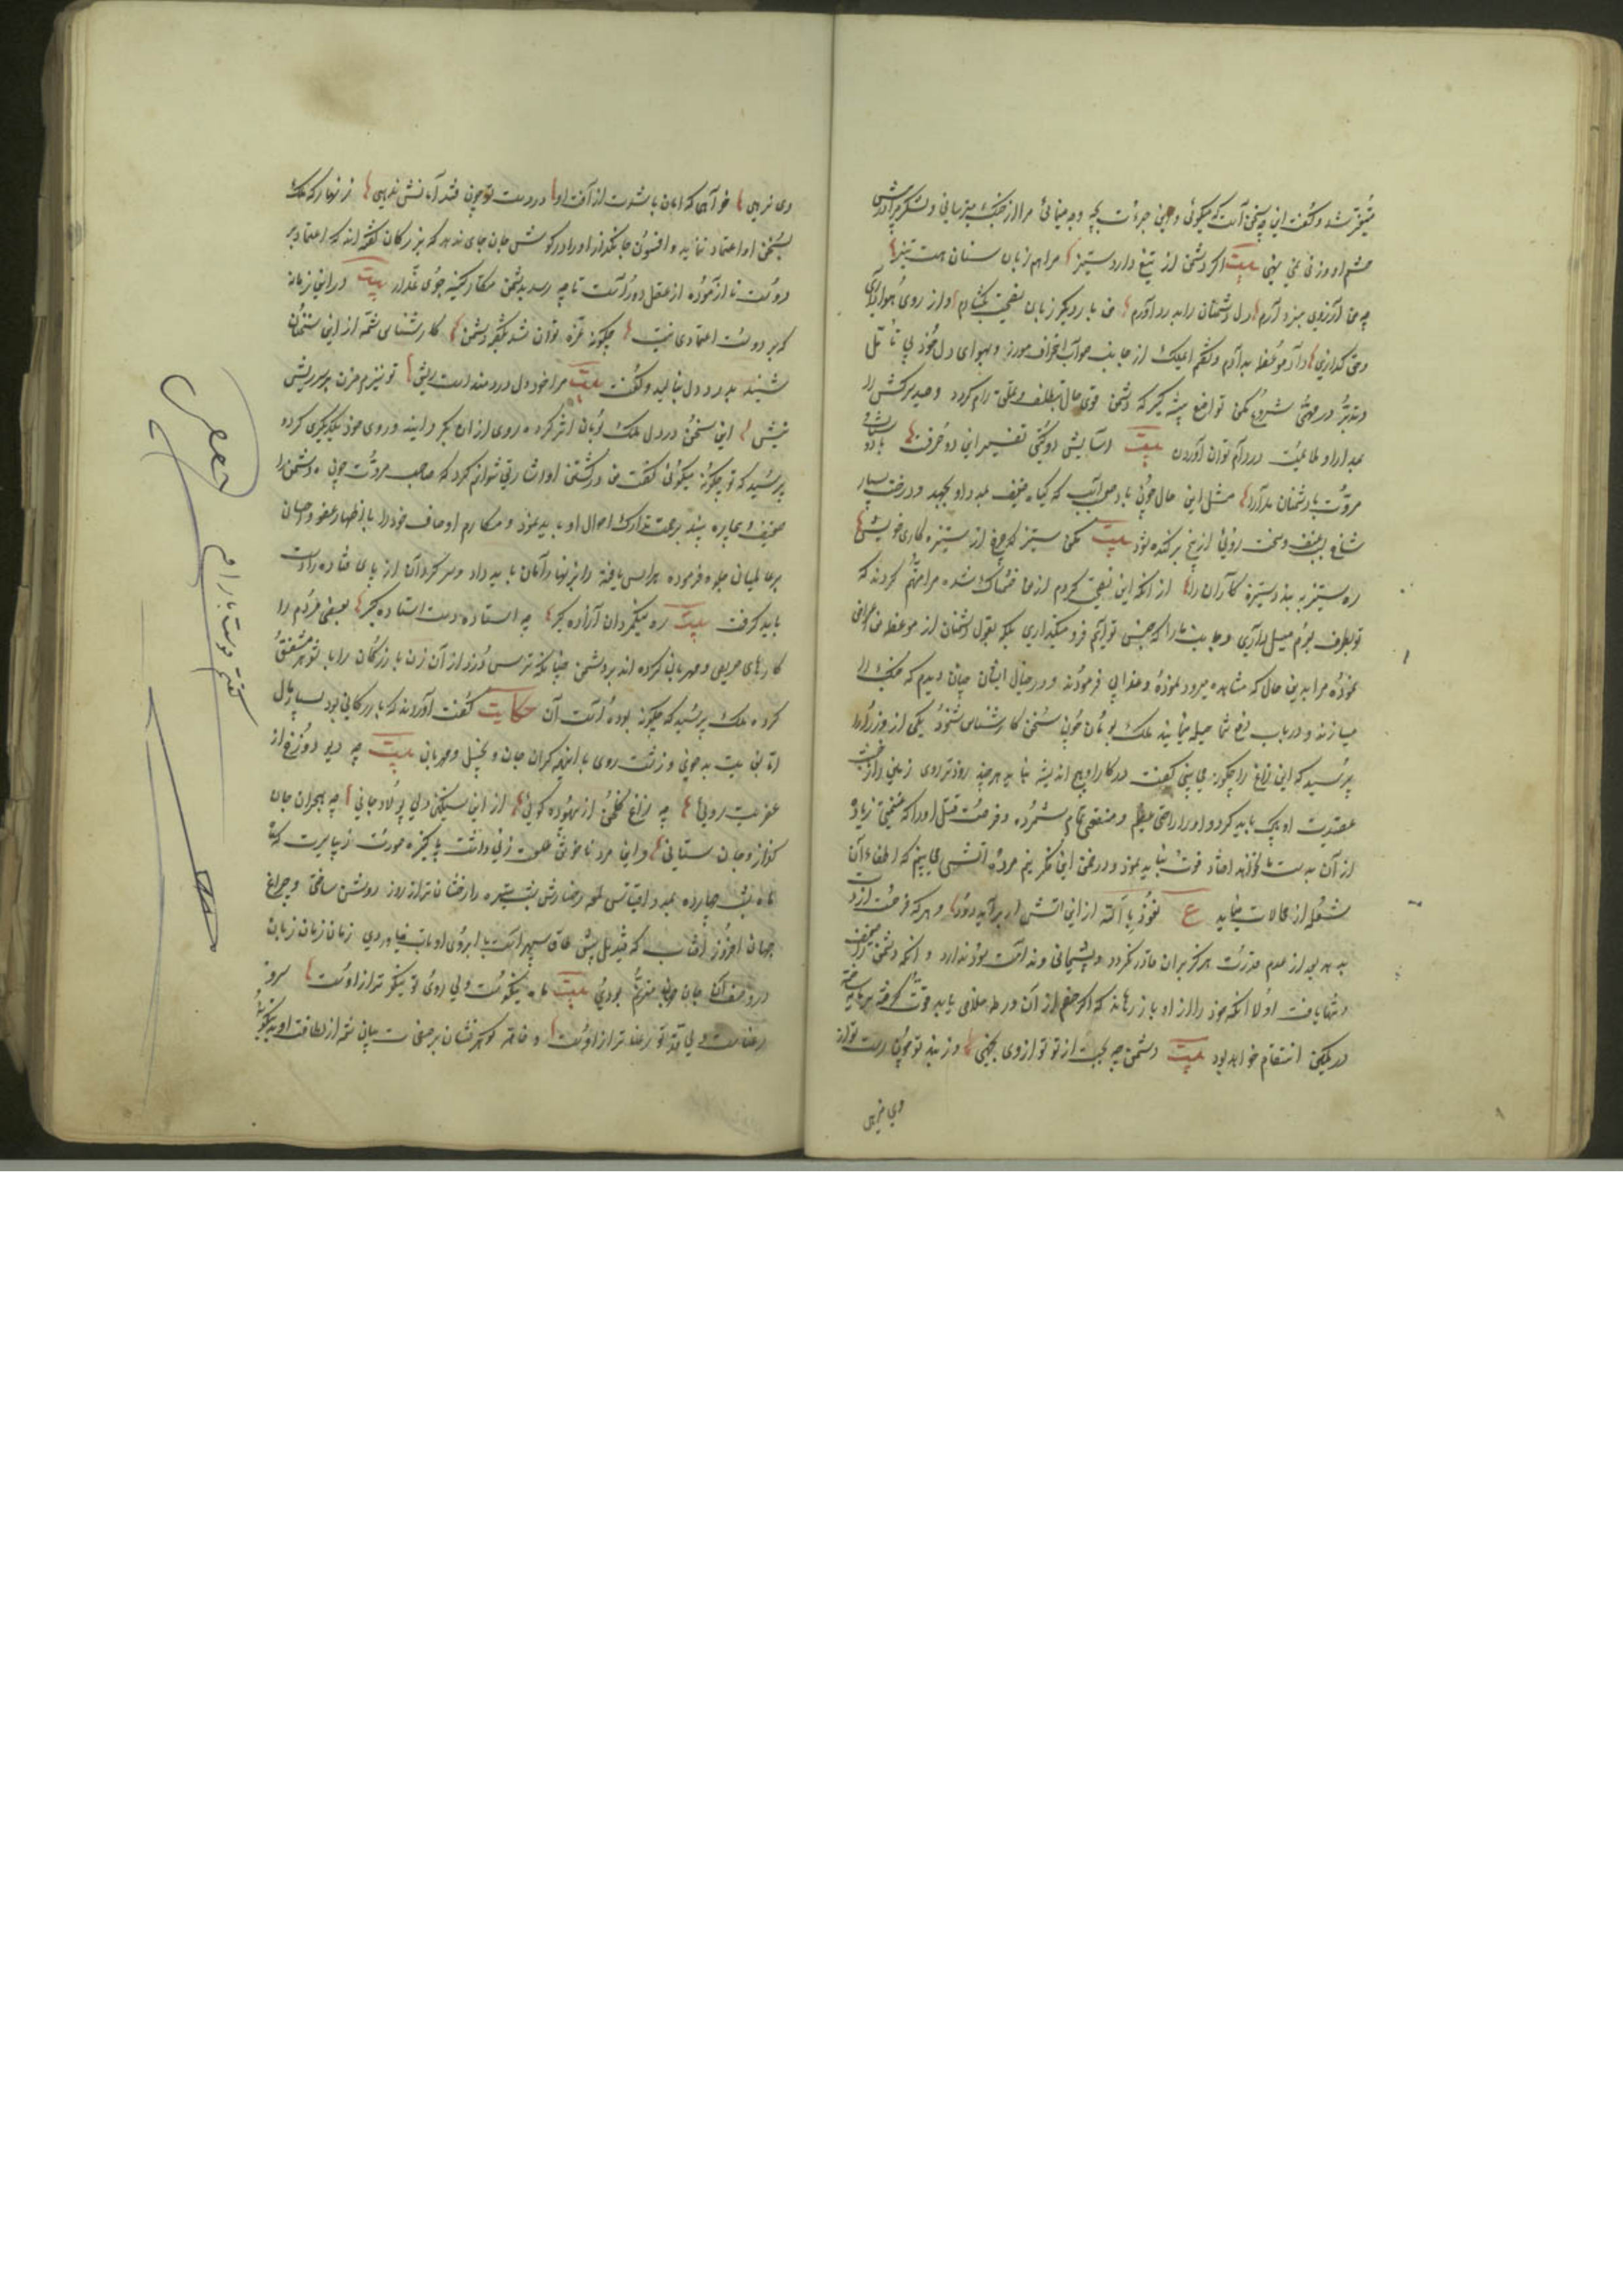 متحیر شد و گفت این چه سخن است که میگوئی و این جرءت بچه وجه مینمائی مرا از جنگ میترسانی و لشکر مرا در
چشم او وزنی نمی نهی بیت اگر دشمن از تیغ دارد ستیز مرا هم زبان سنان هست تیز
چه من آرزوی نبرد آرم دل دشمنان را بدرد آورم من بار دیگر زبان نصیحت بگشادم و از روی هواداری
وحق گذاری داد موعظه بدادم و گفتم ای ملک از جانب صواب انحراف مورز و بهوای دل خود بی تأمل
و تدبر در مهمی شروع مکن تواضع پیشه گیر که دشمن قوی حال بتلطف و تملق رام گردد و صید سرکش را
بمدارا و ملایمت در دام توان آوردن بیت آسایش دو گیتی تفسیر این دو حرفست با دوستان
مروت با دشمنان مدارا مثل این حال چون باد صعب است که گیاه ضعیف بمدارا بجهد و درخت بسیار
شاخ بعنف و سخت روئی از بیخ برکنده شود بیت مکن ستیز که چرخ از ستیزه کاری خویش
ره ستیز به بندد ستیزه کاران را از آنکه این نصیحت کردم از من خشمناک شده مرا متهم کردند که
تو بطرف بوم میل داری و جانب ما را که جنس توایم فرو میگذاری ملک بقول دشمنان از موعظه من اعراض
نموده مرا بدین حال که مشاهده میرود نموده و عذابی فرمودند و در خیال ایشان چنان دیدم که جنگ را
میسازند و در باب دفع شما حیله مینمایند ملک بومان چون سخن کارشناس شنود یکی از وزرا را
پرسید که این زاغ را چگونه می بینی گفت در کار او هیچ اندیشه نباید هر چند زودتر روی زمین را از خبث
عقیدت او پاک باید کرد و او را راحتی عظیم و منفعتی تمام شمرده و فرصت قتل او را که غنیمتی زیاده
از آن بدست ما نخواهد افتاد فوت نباید نمود و در ضمن این فکر نیم مرده آتشی می بینم که اطفاء آن
شعله از محالات مینماید ع نعوذ بالله از این آتش ار برآید دود و هر که فرصت از دست
بدهد بعد از عدم قدرت هرگز بر آن قادر نگردد و پشیمانی و ندامت سود ندارد و آنکه دشمن را ضعیف
و تنها یافت اولا آنکه خود را از او باز رهاند که اگر خصم از آن ورطه خلاصی یابد قوت گرفته
در کمین انتقام خواهد بود بیت دشمن چو بجست از تو تو از وی بجهی وز بند تو چون رست تو از
وی نرهی
وی نرهی خواهی که امان باشدت از آفت او در دست تو چون فتد امانش ندهی زنهار که ملک
بسخن او اعتماد ننماید و افسون جانگداز او را در گوش جان جای ندهد که بزرگان گفته اند که اعتماد بر
دوست ناآزموده از عقل دور است تا چه رسد بدشمن مکار کینه جوی غدار بیت در این زمانه
که بر دوست اعتمادی نیست چگونه غره توان شد بقول دشمن کارشناس شمه از این سخنان
شنید بدرد دل بنالید و گفت بیت مرا خود دل دردمند است ریش تو نیزم مزن بر سر ریش
نیش این سخن در دل ملک بومان اثر کرده روی از آن بگردانید و روی خود بدیگری کرده
پرسید که تو چگونه میگوئی گفت من در کشتن او اشارتی نتوانم کرد که صاحب مروت چون دشمن را
ضعیف و بیچاره بیند برحمت تدارک احوال او باید نمود و مکارم اوصاف خود را باظهار عفو و احسان
بر عالمیان جلوه فرموده هراس یافته را زینهار و امان باید داد و سر گردان از پای فتاده را دست
باید گرفت بیت ره نیکمردان آزاده گیر چه استاده دست افتاده گیر بعضی مردم را
کارهای حریف و مهربان کرده اند بر دشمن چنانکه ترس دزد از آن زن بازرگان را با شوهر مشفق
کرده ملک پرسید که چگونه بوده است آن حکایت گفت آوردند که بازرگانی بود بسیار مال
اما بس بدخوی و زشت روی با اینهمه گران جان و بخیل و مهربان بیت چه دیو دوزخ از
عفریت رویی چه زاغ گلخن از بیهوده گویی از این سنگین دلی پولاد جانی چه هجران جان
گداز و جان ستانی و این مرد ناخوش طلعت زنی داشت پاکیزه صورت زیبا سیرت که
ماه شب چهارده بمدد اقتباس لمعه رخسارش شب تیره را رخشان تر از روز روشن ساختی و چراغ
جهان افروز آفتاب که قندیل پیش طاق سپهر است با ابروی او تاب نیاوردی زمان زمان زبان
در وصف آن جان جهان مترنم بودی بیت ماه نیکوست ولی روی تو نیکوتر از اوست سرو
رعناست ولی قد تو رعناتر از اوست و خامه گوهرفشان بر صفحات بیان شمه از لطافت او